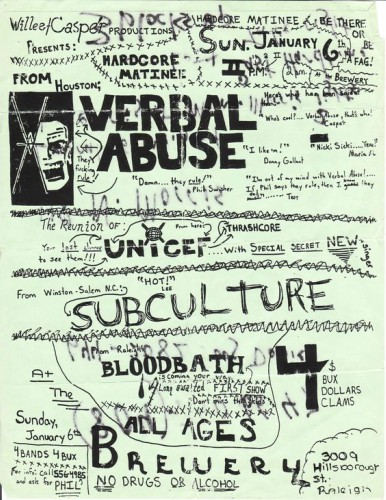 Willee/Casper PRODUCTIONS
PRESENTS:
HARDCORE MATINEE BE THERE
OR
BE
A FAG!
HARDCORE
MATINEE
SUN. JANUARY 6th
2 P.M.
BREWERY
FROM HOUSTON;
VERBAL
ABUSE
They
fucking
rule
"Who's cool?... Verbal Abuse, that's who!
Casper
"I like em!"
Danny Gallant
"Damn.... they rule!"
Phil Swisher
"I'm out of my mind with Verbal Abuse!...
If Phil says they rule, then I
The Reunion of:
From here:
THRASHCORE
UNICEF
....With SPECIAL SECRET NEW
singer
Your last chance
to see them!!!
From Winston-Salem N.C.:
"HOT!"
LEE
SUBCULTURE
From Raleigh
BLOODBATH
is coming your way
Long awaited FIRST SHOW
Don't miss
4
$
BUX
DOLLARS
CLAMS
At
The
Sunday,
January 6th
ALL AGES
4 BANDS 4 BUX
For info: call 556-4985
and ask for PHIL
BREWERY
NO DRUGS OR ALCOHOL
3009
Hillsborough
St.
Raleigh